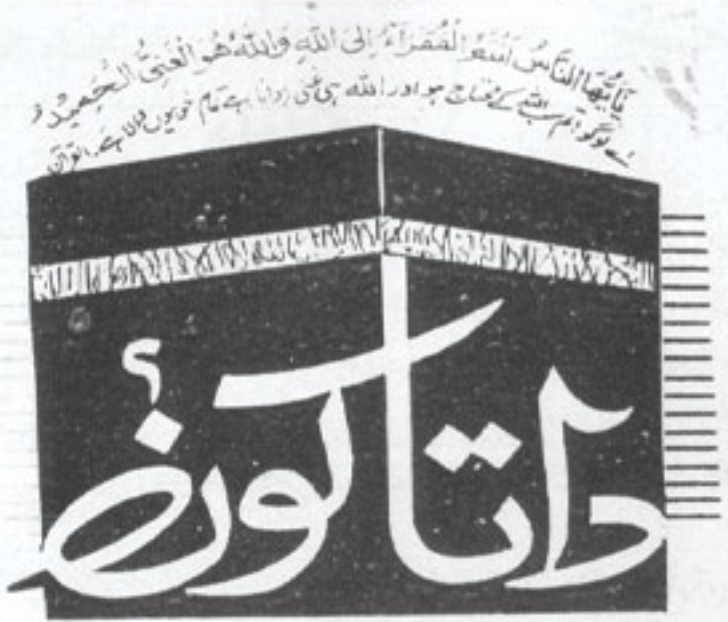 يَا أَيُّهَا النَّاسُ أَنْتُمُ الْفُقَرَاءُ إِلَى اللَّهِ وَاللَّهُ هُوَ الْغَنِيُّ الْحَمِيدُ
اے لوگو تم سب اللہ کے محتاج ہو اور اللہ ہی غنی ہے تمام خوبیوں والا ہے۔ القرآن
داتا کون؟